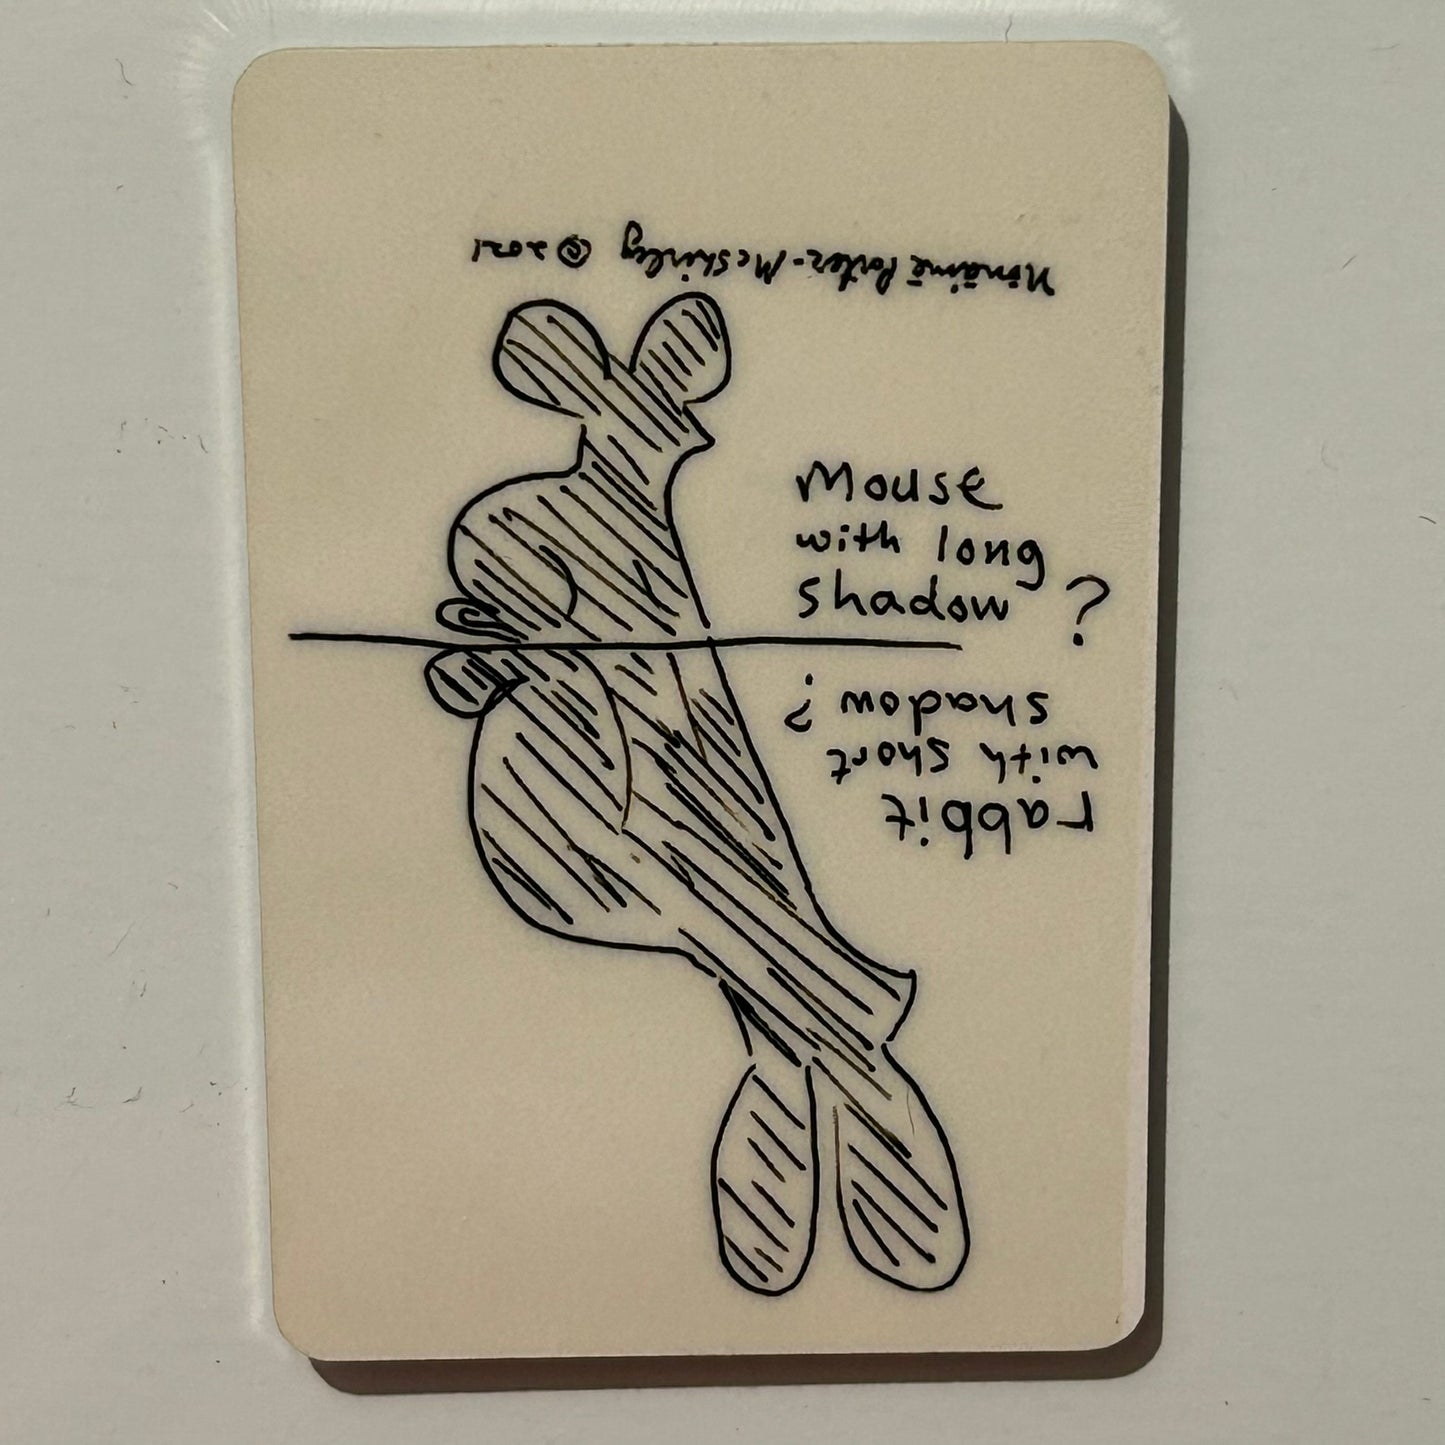 Mouse
with long
shadow ?
rabbit
with short
shadow ?
Nōnāmē Porter-McShirley © 2021